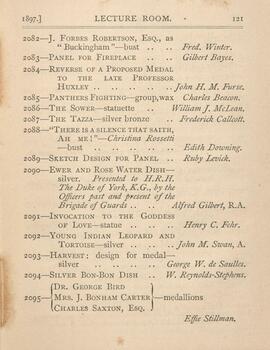 1897.] LECTURE ROOM. 121
2082—J. FORBES ROBERTSON, ESQ., as
"Buckingham"—bust .. .. Fred. Winter.
2083—PANEL FOR FIREPLACE .. .. Gilbert Bayes.
2084—REVERSE OF A PROPOSED MEDAL
TO THE LATE PROFESSOR
HUXLEY .. .. .. .. John H. M. Furse.
2085—PANTHERS FIGHTING—group, wax Charles Beacon.
2086—THE SOWER—statuette .. William J. McLean.
2087—THE TAZZA—silver bronze .. Frederick Callcott.
2088—"THERE IS A SILENCE THAT SAITH,
AH ME!"—Christina Rossetti
—bust .. .. .. .. Edith Downing.
2089—SKETCH DESIGN FOR PANEL .. Ruby Levick.
2090—EWER AND ROSE WATER DISH—
silver. Presented to H.R.H.
The Duke of York, K.G., by the
Officers past and present of the
Brigade of Guards .. .. Alfred Gilbert, R.A.
2091—INVOCATION TO THE GODDESS
OF LOVE—statue .. .. Henry C. Fehr.
2092—YOUNG INDIAN LEOPARD AND
TORTOISE—silver .. .. John M. Swan, A.
2093—HARVEST; design for medal—
silver .. .. .. George W. de Saulles.
2094—SILVER BON-BON DISH .. W. Reynolds-Stephens.
2095— { DR. GEORGE BIRD
MRS. J. BONHAM CARTER
CHARLES SAXTON, ESQ. } —medallions
Effie Stillman.